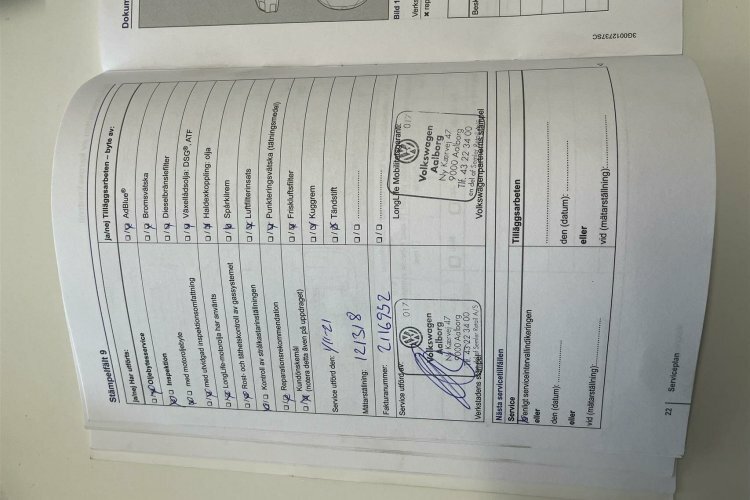 Dokum
Bild 1
Verks
✖ rep
Besk
3G0012737SC
Stämpelfält 9
ja/nej Har utförts:
ja/nej Tilläggsarbeten – byte av:
☐/☐ Oljebytesservice
☐/☐ AdBlue®
☐/☐ Inspektion
☐/☐ Bromsvätska
☐/☐ med motoroljebyte
☐/☐ Dieselbränslefilter
☐/☐ med utvidgad inspektionsomfattning
☐/☐ Växellådsolja: DSG® ATF
☐/☐ LongLife-motorolja har använts
☐/☐ Haldexkoppling: olja
☐/☐ Rost- och täthetskontroll av gassystemet
☐/☐ Spårkilrem
☐/☐ Kontroll av strålkastarinställningen
☐/☐ Luftfilterinsats
☐/☐ Reparationsrekommendation
☐/☐ Punkteringsvätska (tätningsmedel)
Kundönskemål
☐/☐ (notera detta även på uppdraget)
☐/☐ Friskluftsfilter
☐/☐ Kuggrem
Service utförd den:
☐/☐ Tändstift
Mätarställning: 121318
☐/☐
Fakturanummer: 2116952
☐/☐
Service utförd av:
LongLife Mobilitetsgaranti:
017
Volkswagen
Aalborg
Ny Kærvej 47
9000 Aalborg
Tlf. 43 22 34 00
Verkstadens stämpel
017
Volkswagen
Aalborg
Ny Kærvej 47
9000 Aalborg
Tlf. 43 22 34 00
Volkswagenpartnerns stämpel
Nästa servicetillfällen
Service
Tilläggsarbeten
☐ enligt serviceintervallindikeringen
eller
den (datum):
den (datum):
eller
eller
vid (mätarställning):
vid (mätarställning):
22
Serviceplan